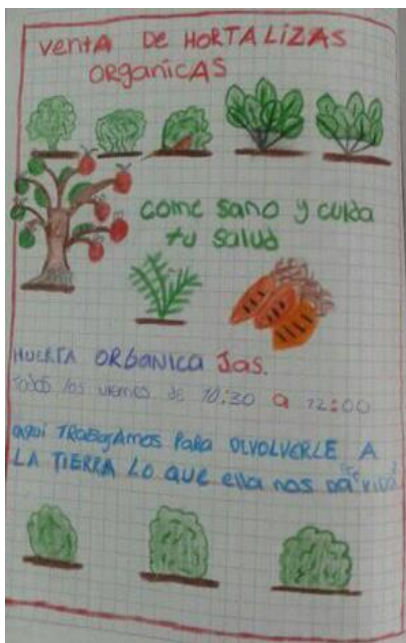 VentA DE HORTALIZAS
ORGanicAS
come sano y cuida
tu salud
HUERTA ORGANICA Jas.
Todos los viernes de 10:30 a 12:00
aqui TRABAJAMOS PARA DEVOLVERLE A
LA TIERRA LO QUE ella nos DA